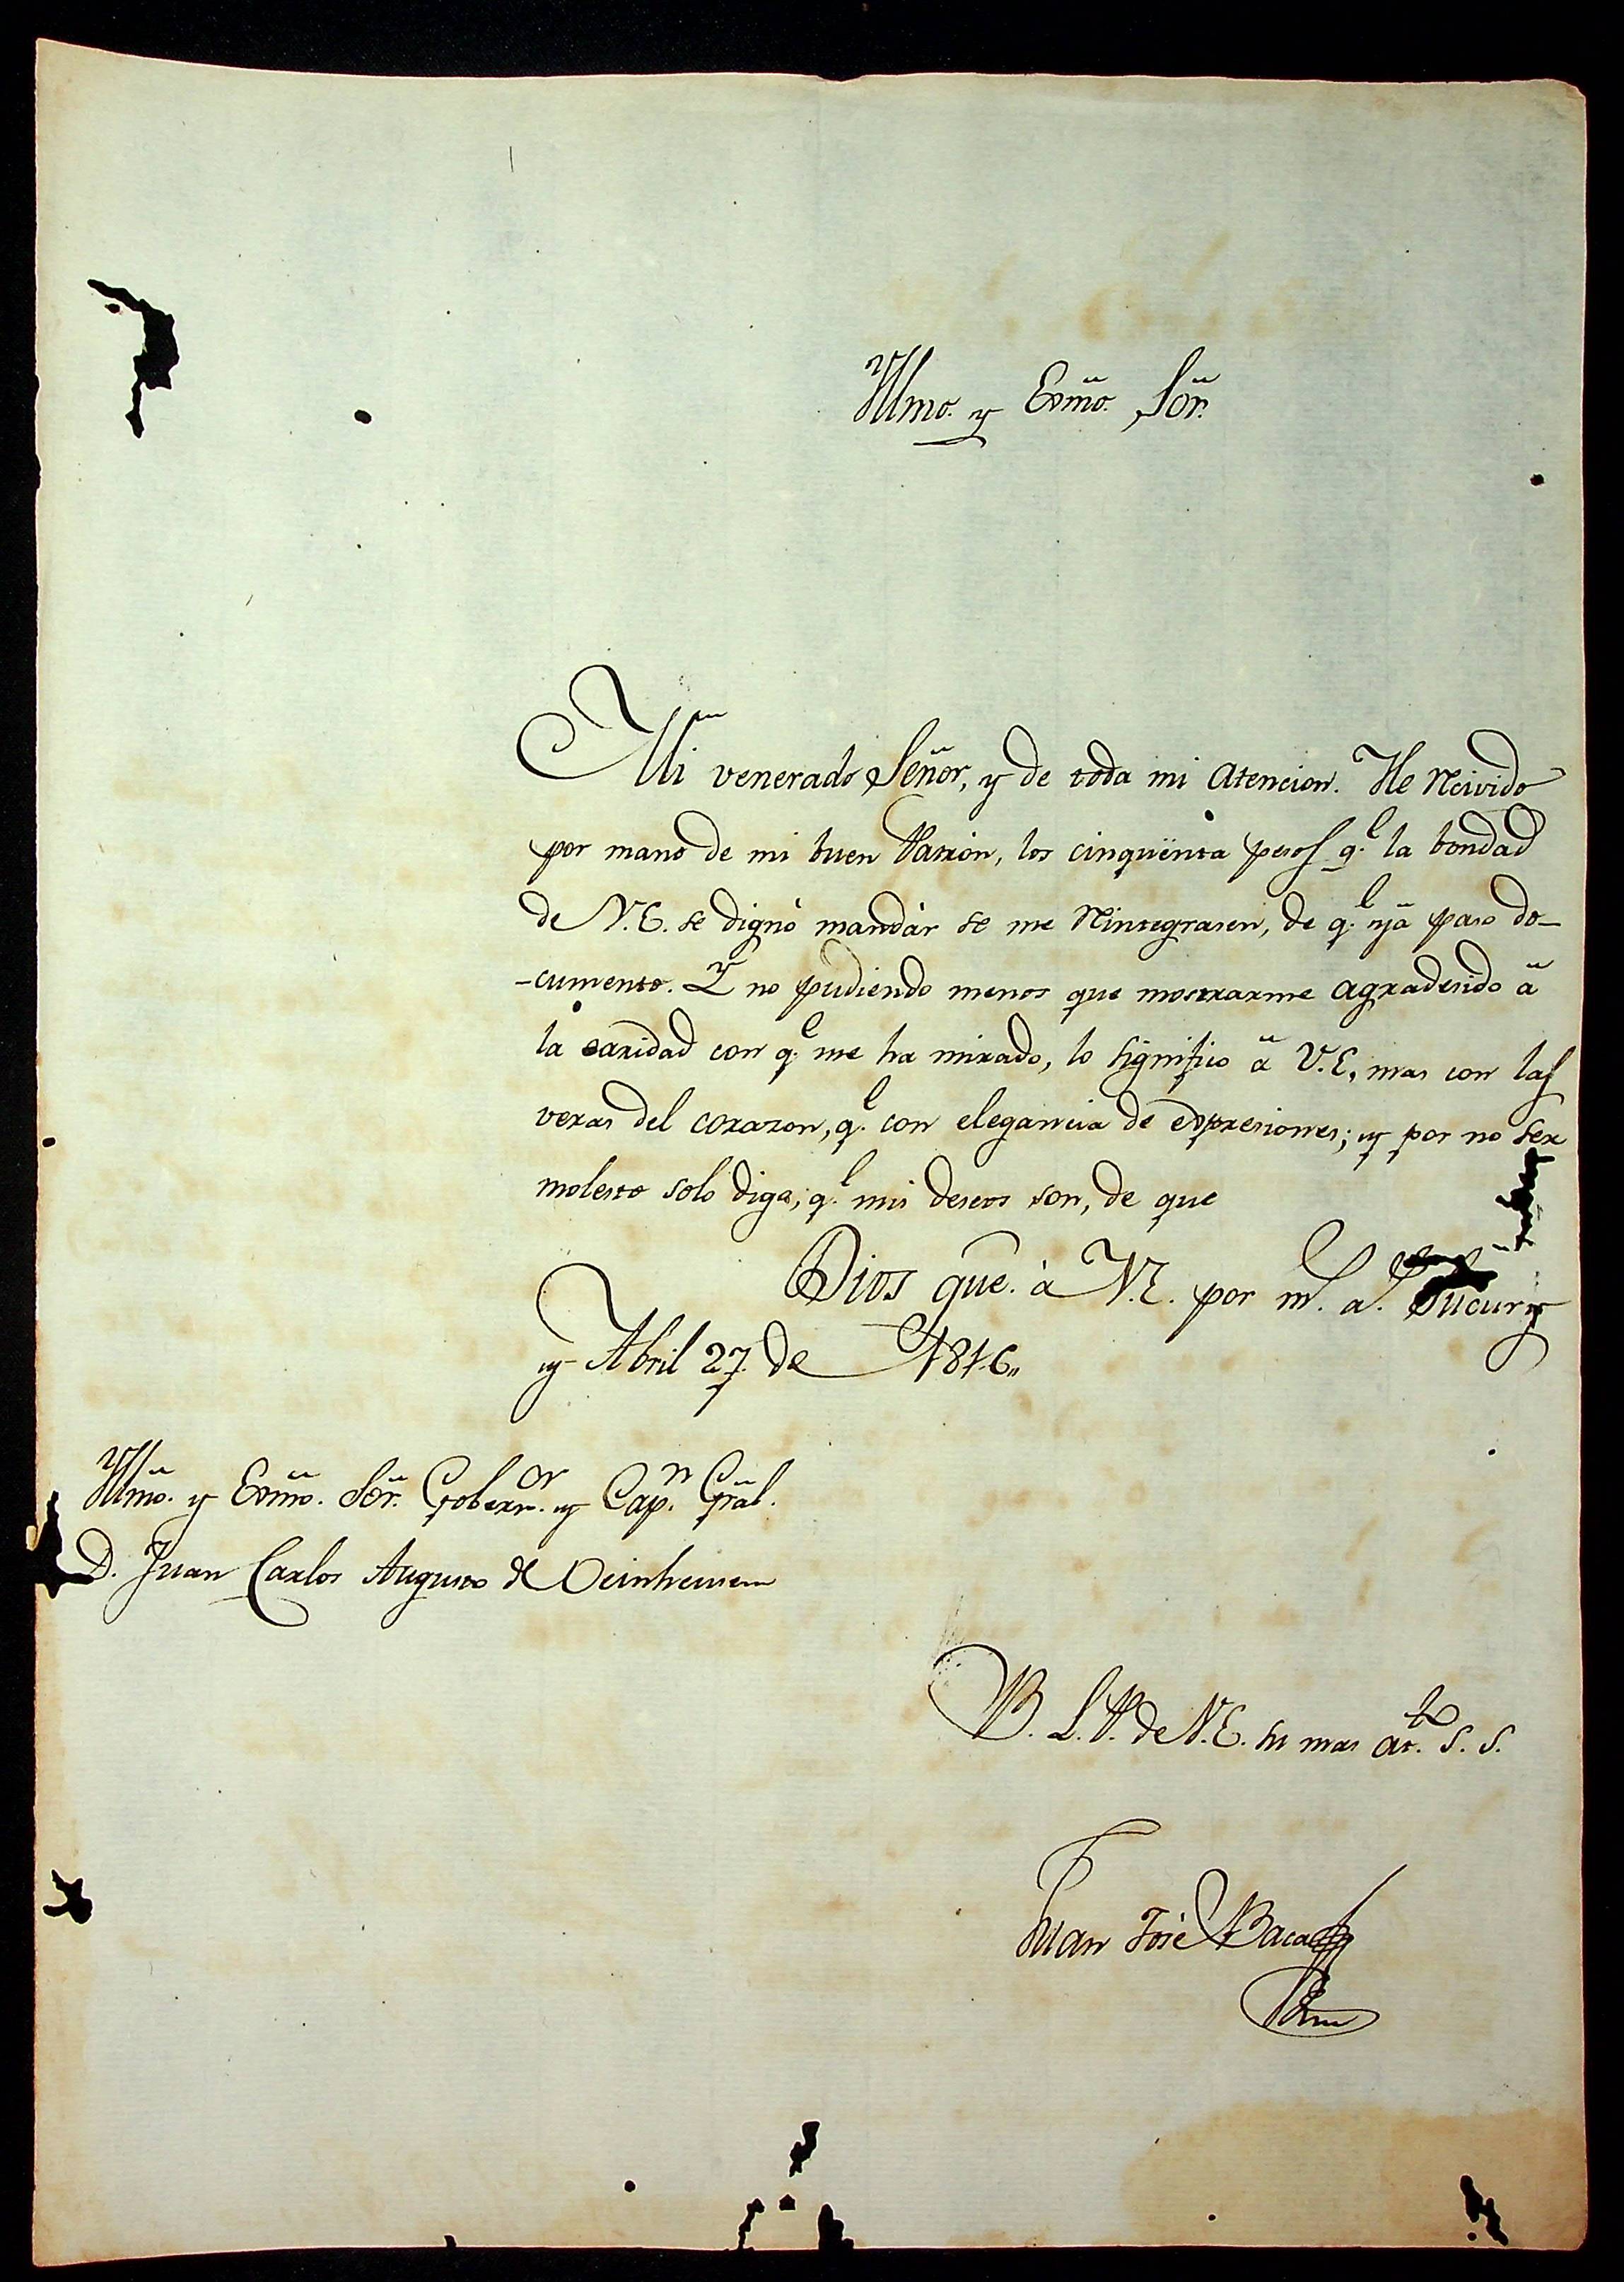 Yllmo. y Exmo. Sor.
Mi venerado Señor, y de toda mi Atencion. He Recivido
por mano de mi buen Patrón, los cinqüenta pesos q.e la bondad
de V.E. se dignó mandár se me Reintegrasen, de q.e yá paso do-
-cumento. Y no pudiendo menos que mostrarme agradesido á
la caridad con q.e me ha mirado, lo significo á V.E, mas con las
veras del corazon, q.e con elegancia de expresiones; y por no ser
molesto solo diga, q.e mis deseos son, de que
Dios gue. á V.E. por m.s a.s Sucury
y Abril 27 de 1816,,
Yllmo. y Exmo. Sor. Gobern.or y Cap.n Gral.
D. Juan Carlos Augusto de Oeinheusem
B. L. P. de V.E. su mas at.to S. S.
Juan José Baca